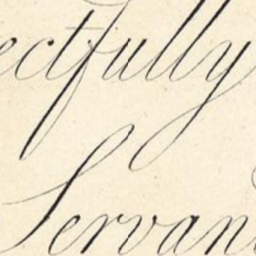 ectfully
Servan